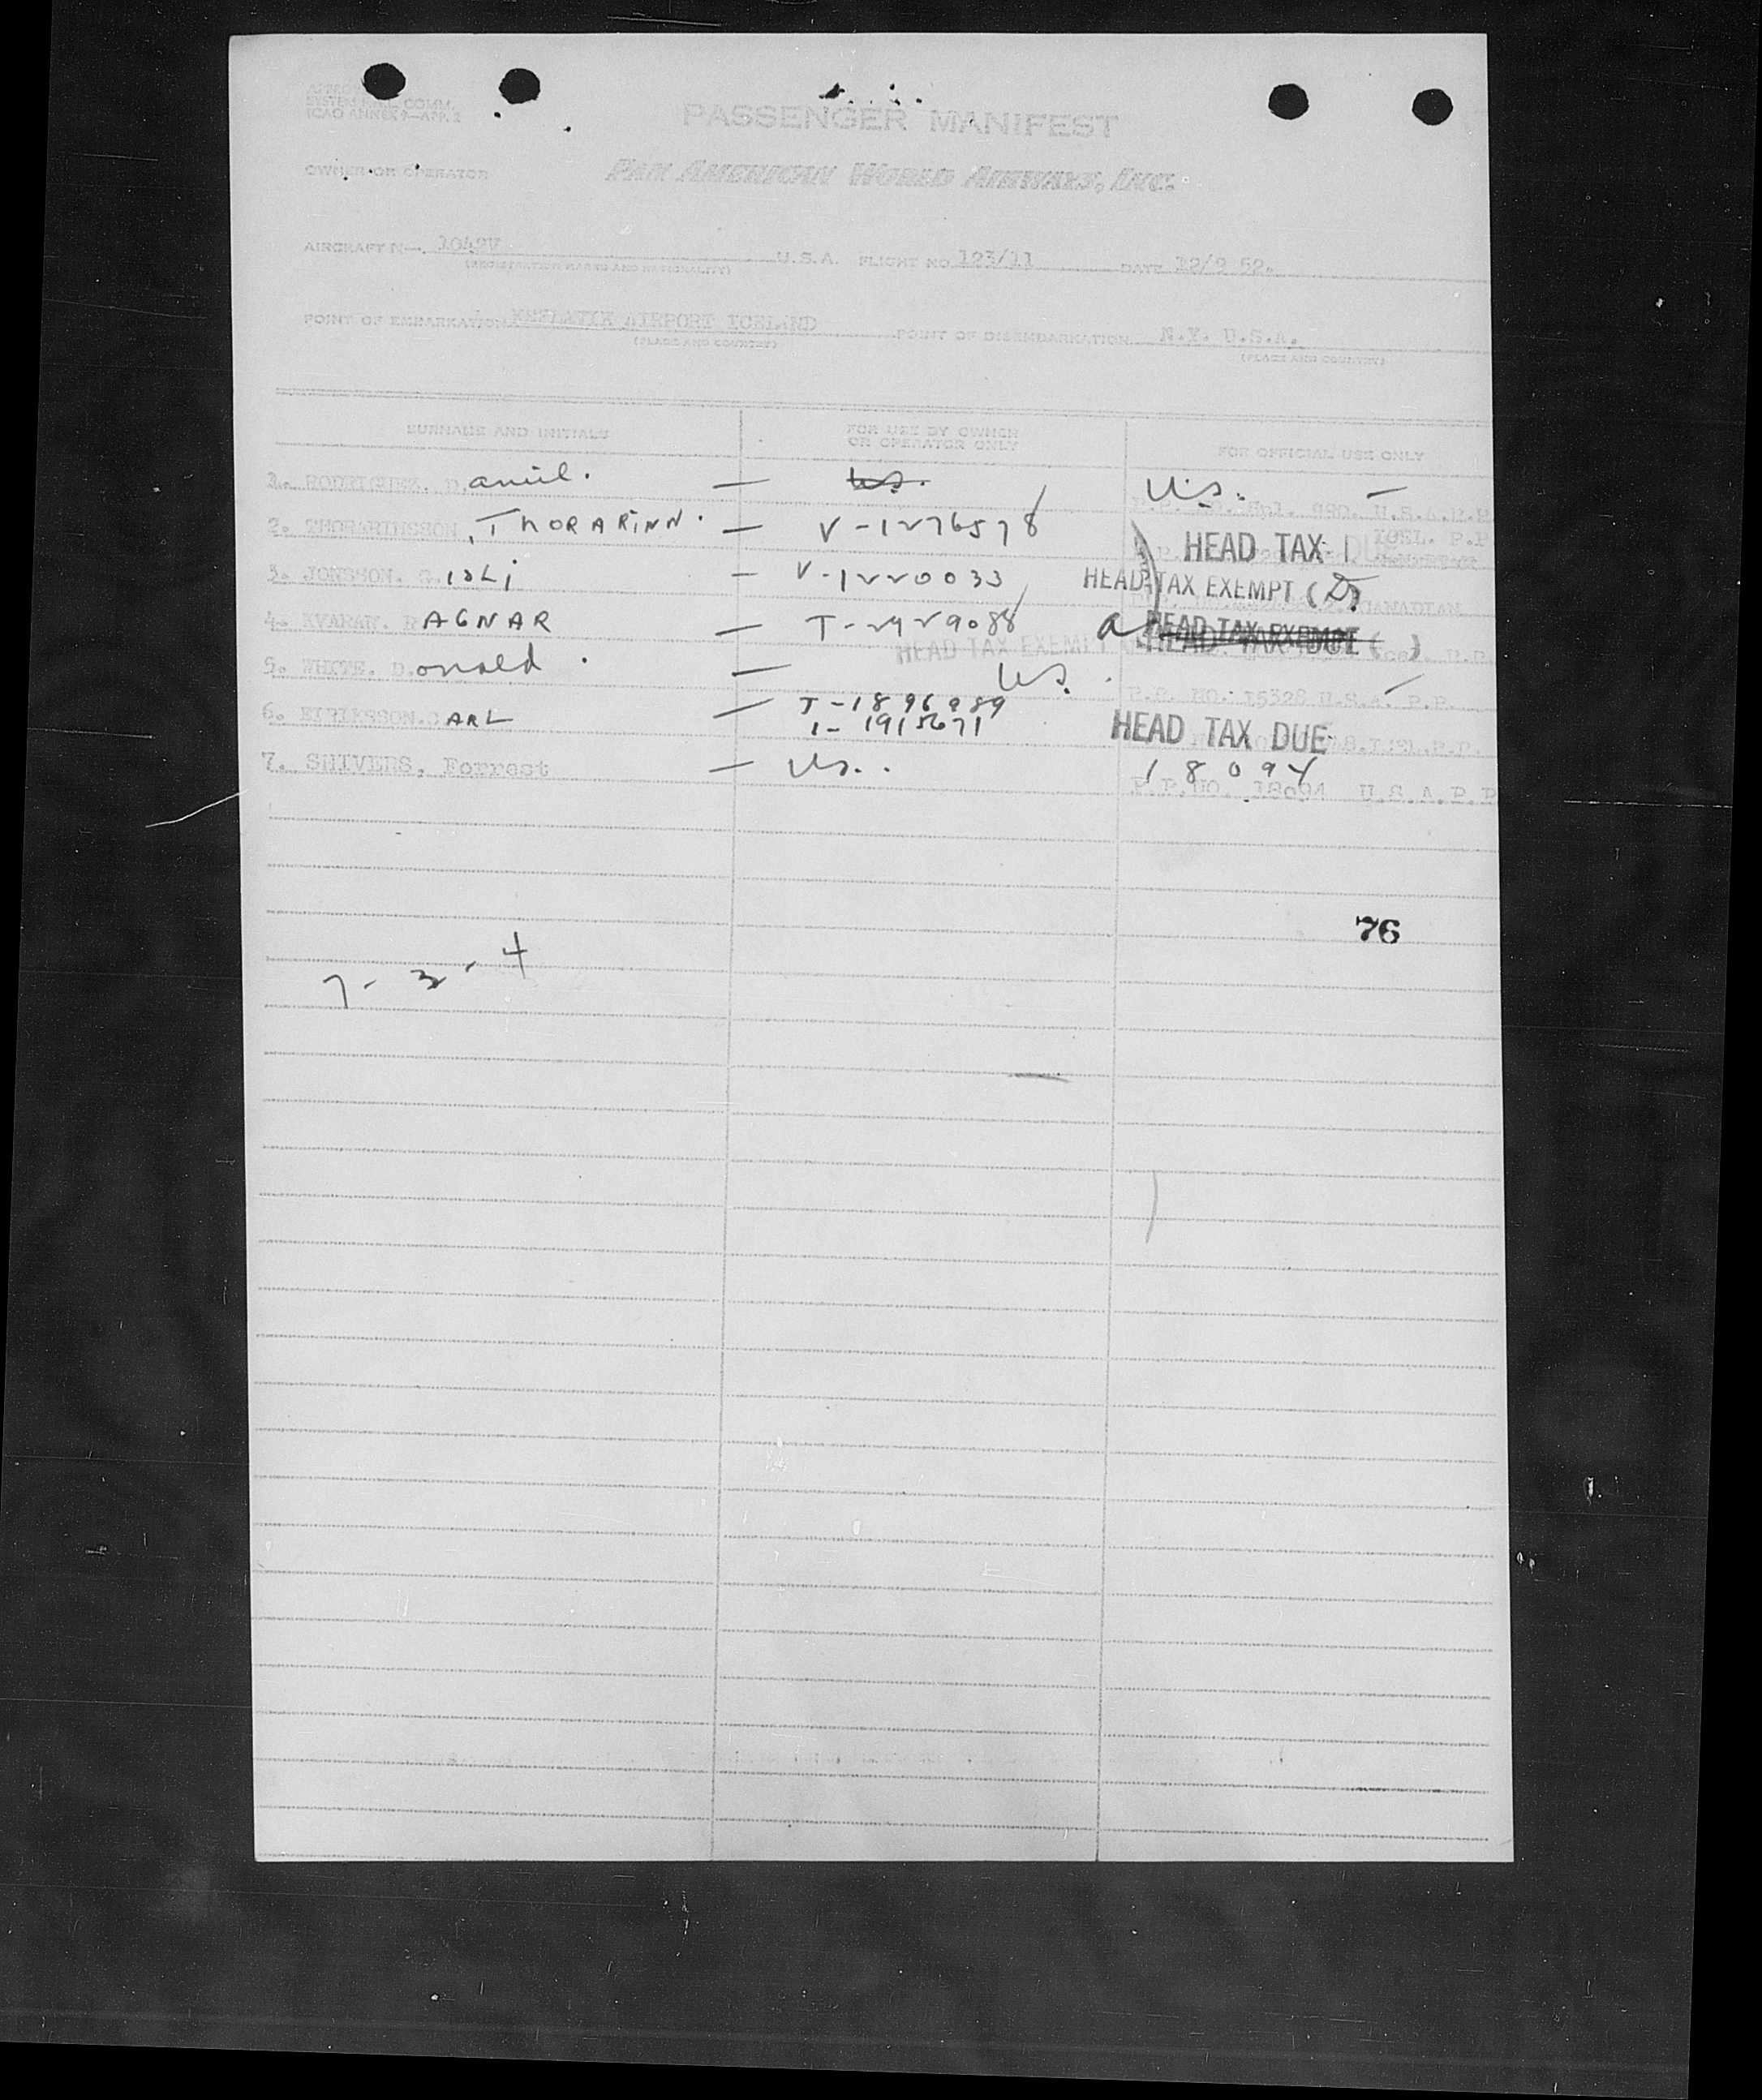 SYSTEM
ICAO ANNEX 9—APP. 2
PASSENGER MANIFEST
OWNER OR OPERATOR PAN AMERICAN WORLD AIRWAYS, INC.
AIRCRAFT N—. 1042V U.S.A. FLIGHT NO 123/11 DATE 12/9 52.
(REGISTRATION MARKS AND NATIONALITY)
POINT OF EMBARKATION KEFLAVIK AIRPORT ICELAND POINT OF DISEMBARKATION N.Y. U.S.A.
(PLACE AND COUNTRY) (PLACE AND COUNTRY)
SURNAME AND INITIALS FOR USE BY OWNER OR OPERATOR ONLY FOR OFFICIAL USE ONLY
1. RODRIGUEZ. Daniel. — U.S. U.S. —
U.S.A.P.P
2. THORARINSSON, THORARINN. — V-1276578 HEAD TAX DUE
ICEL. P.P
3. JONSSON. GISLI — V-1220033 HEAD TAX EXEMPT
CANADIAN
4. KVARAN. RAGNAR — T-2929088 HEAD TAX EXEMPT ( )
HEAD TAX EXEMPT HEAD TAX DUE
5. WHITE. Donald. — U.S.
P.P. NO. 15328 U.S.A. P.P.
6. EIRIKSSON. CARL — T-1896989 HEAD TAX DUE
1-1915671
7. SHIVERS, Forrest — U.S. 18094
P.P.NO. 18094 U.S.A.P.P
76
7-3-4